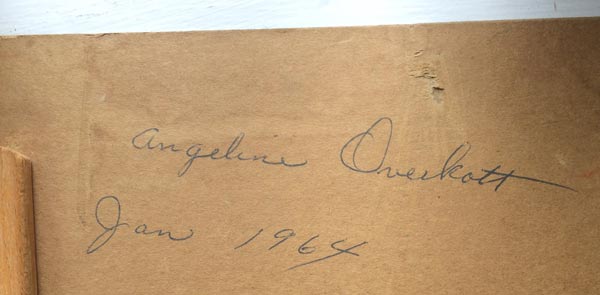 Angeline Overkott
Jan 1964